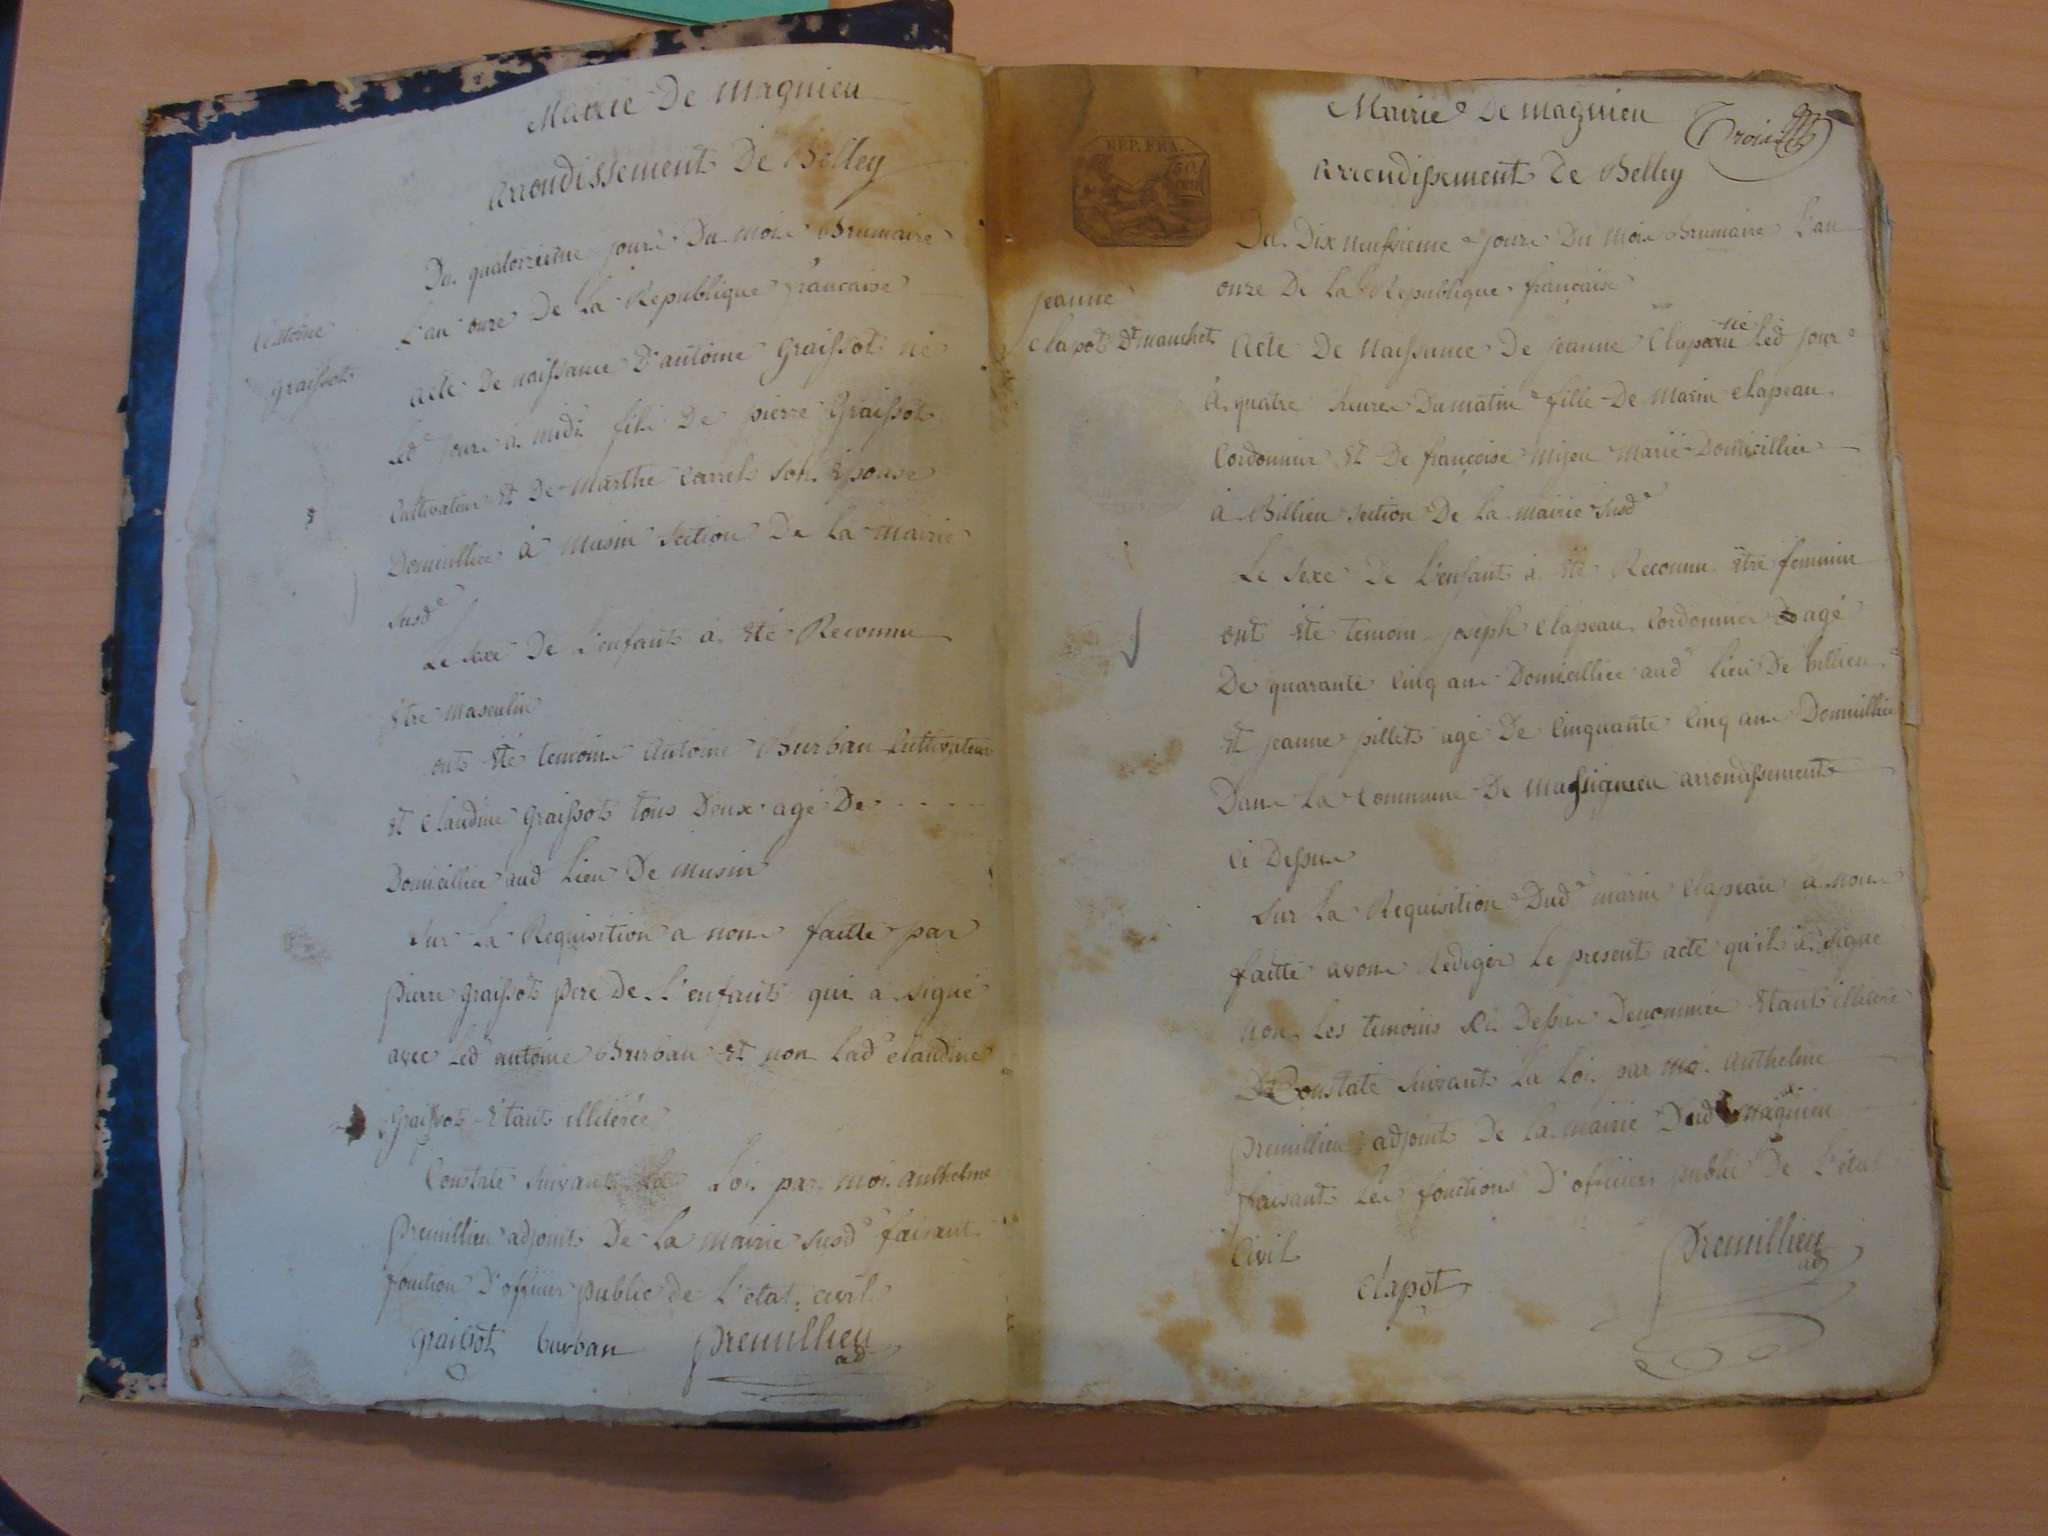 Mairie De magnieu
arrondissement De Belley
Du quatorzieme jour Du mois Brumaire
L'an onze De La Republique francaise
antoine
graissot
acte De naissance D'antoine graissot né
Led jour à midi fils De pierre graissot
Cultivateur Et De marthe Carrel son Epouse
Domicillies à musin section De La mairie
susd
Le sexe De L'enfant à Eté Reconnu
Etre masculin
ont Eté temoins antoine Burban Cultivateur
et claudine graissot tous Deux agé De - - - -
Domicillies aud Lieu De musin
sur La Requisition a nous faitte par
pierre graissot pere De L'enfant qui à signé
avec Led antoine Burban Et non Lad claudine
graissot Etant illiterée
Constaté suivant La Loi par moi anthelme
premillieu adjoint De La mairie susd faisant
fonction D'officier public de L'etat civil
graissot burban premillieu
ad
Mairie De magnieu
Trois
arrondissement De Belley
REP. FRA.
50
cen
Du Dix neufvieme jour Du mois Brumaire L'an
onze De La Republique francaise
jeanne
clapot Dt manchet
acte De naissance De jeanne Clapeau né Led jour
à quatre heures Du matin fille De marin clapeau
Cordonnier Et De françoise mijeu mariés Domicillies
à Billieu section De La mairie susd
Le sexe De L'enfant à Eté Reconnu Etre feminin
ont Eté temoin joseph clapeau Cordonnier agé
De quarante Cinq ans Domicillies aud Lieu De billieu
Et jeanne pillet agé De Cinquante Cinq ans Domicillie
Dans La Commune De massignieu arrondissement
Ci Dessus
sur La Requisition Dud marin clapeau à nous
faitte avons Rediger Le present acte qu'il à signé
non Les temoins Ci Dessus Denommés Etant illiteré
Constaté suivant La Loi par moi anthelme
premillieu adjoint De La mairie Dud magnieu
faisant Les fonctions D'officier public De L'état
Civil
clapot premillieu
ad